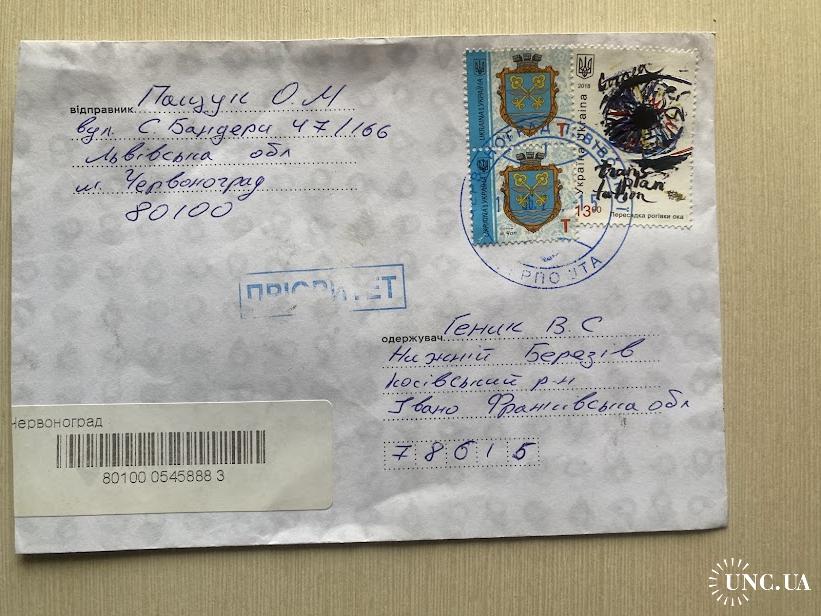 відправник Пащук О.М
вул. С Бандери 47/166
Львівська обл
м. Червоноград
80100
UKRAINA УКРАЇНА
T
UKRAINA УКРАЇНА
T
2018
Україна Ukraina
trans
plan
tation
13.00
Пересадка рогівки ока
УКРПОШТА
ПРІОРИТЕТ
одержувач Геник В.С
Нижній Березів
Косівський р-н
Івано Франківська обл
78615
Червоноград
80100 0545888 3
UNC.UA